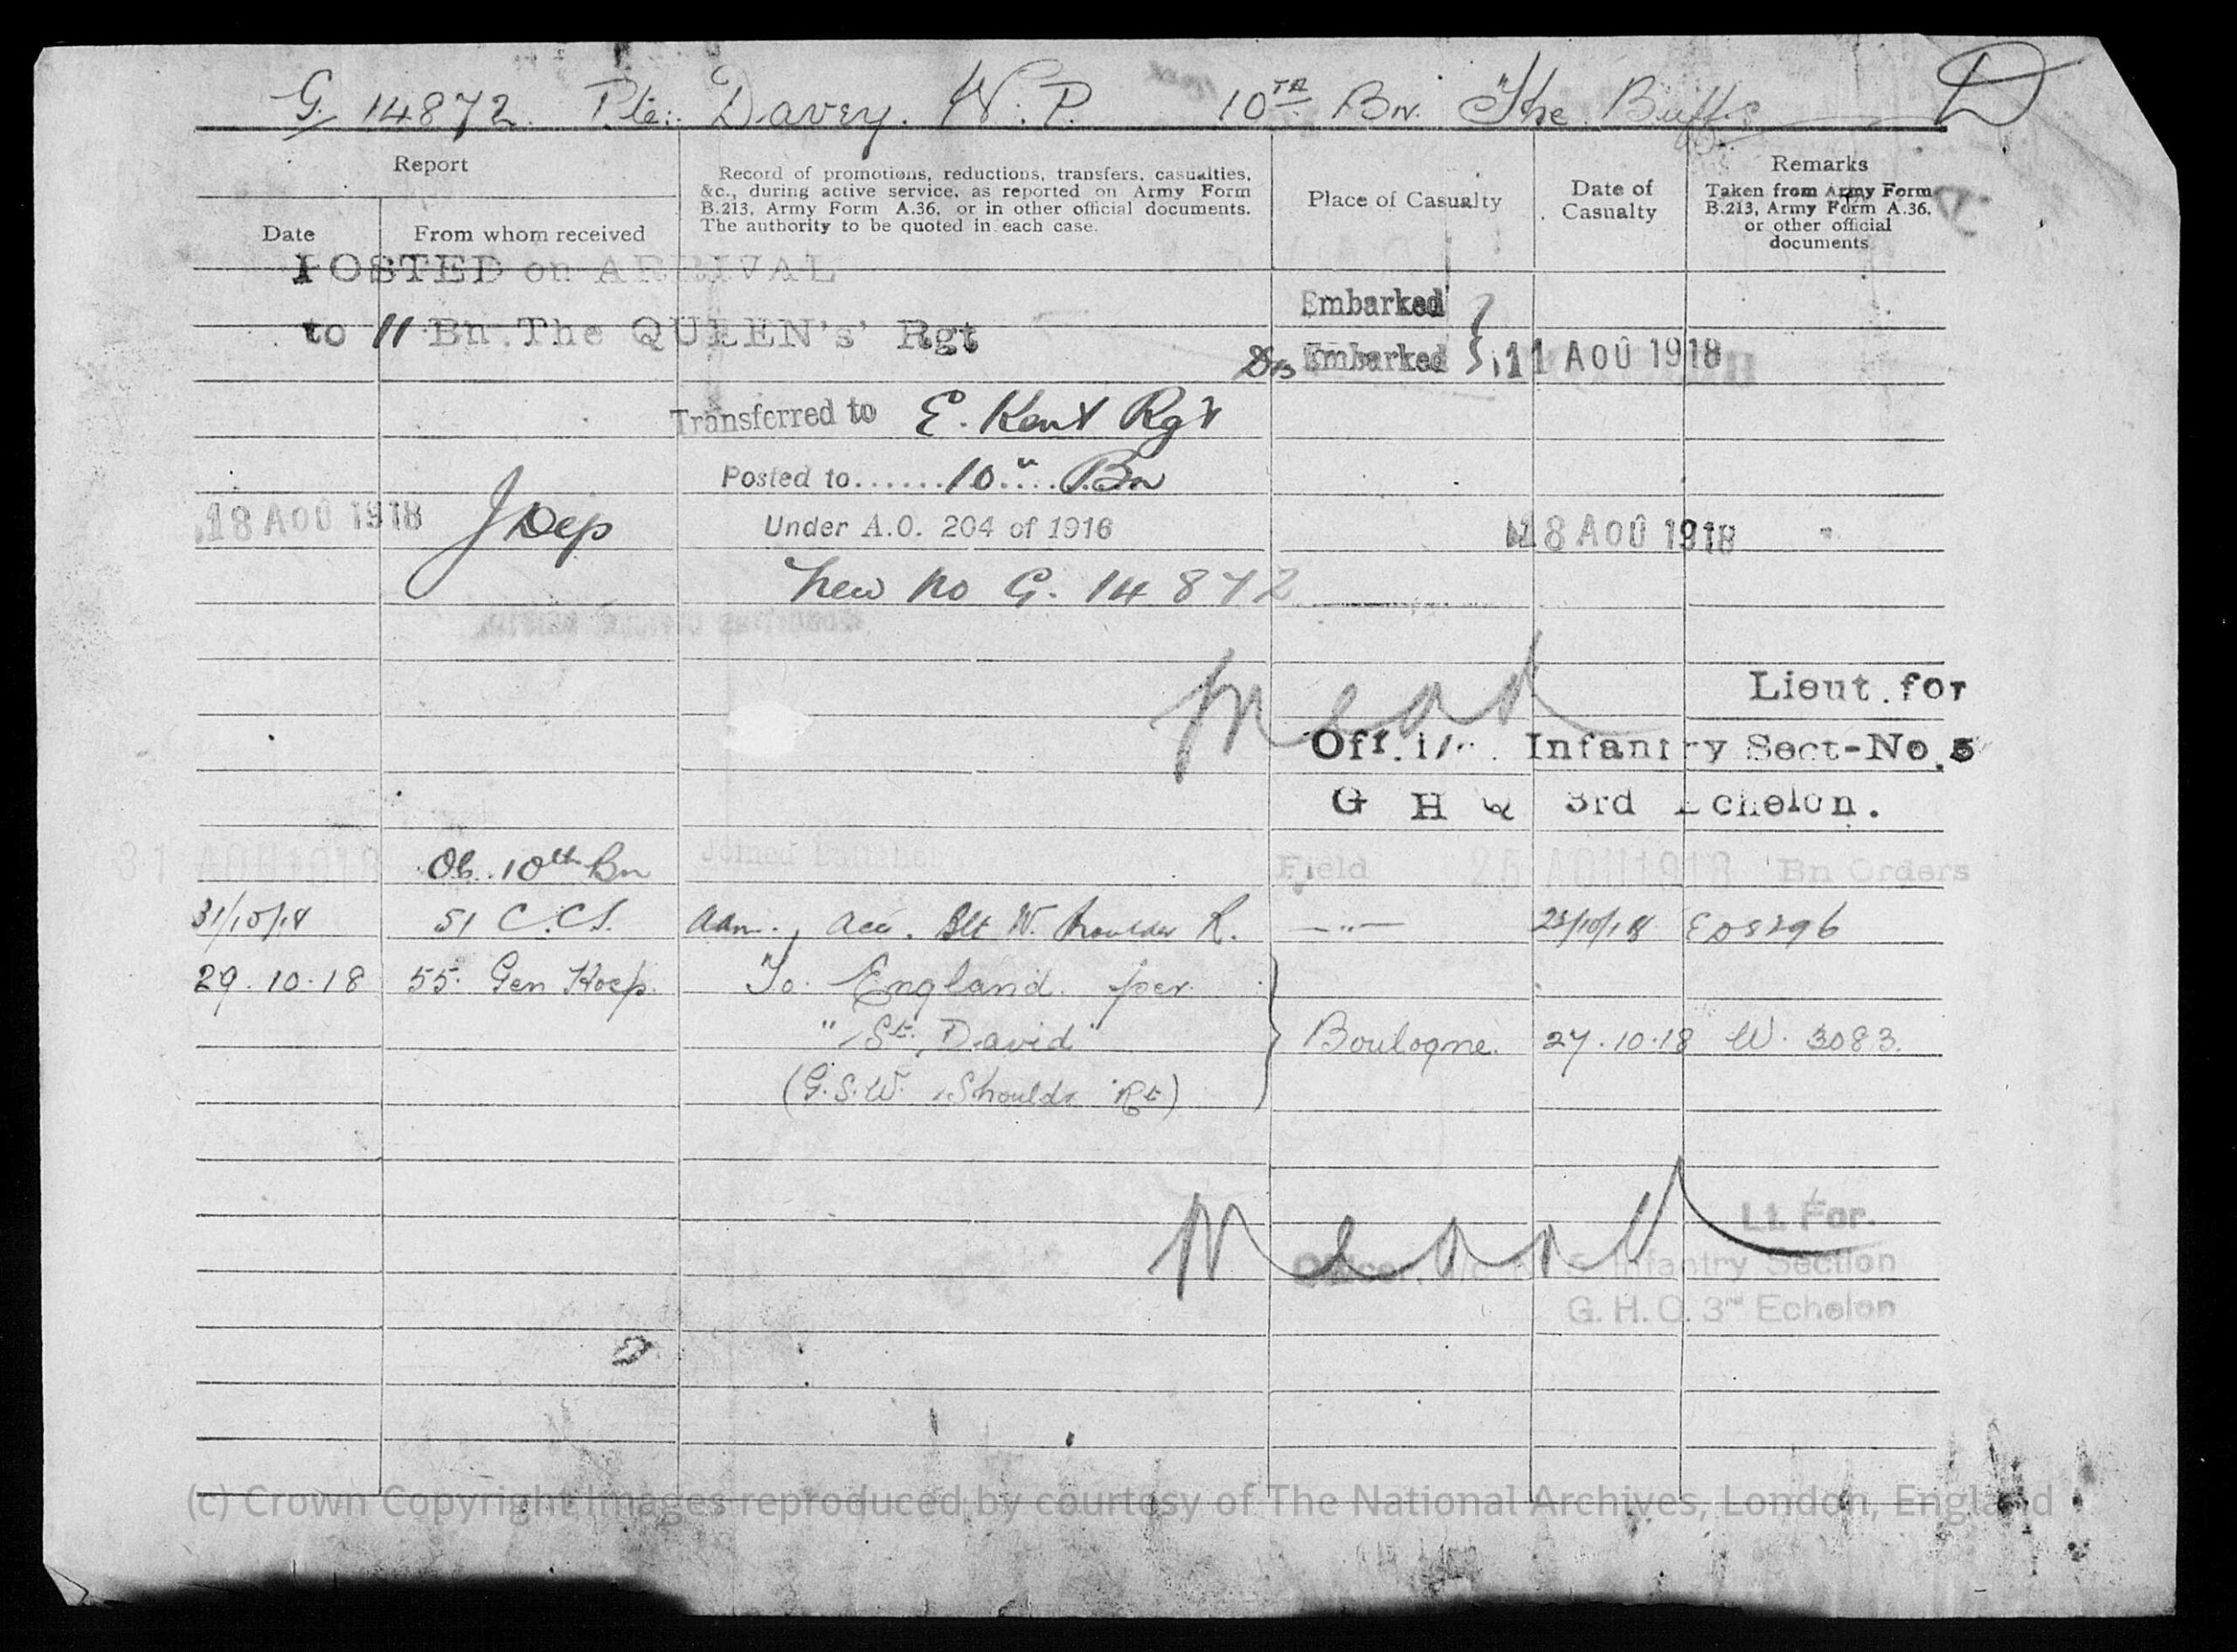 G/ 14872. Pte. Davey. W. P. 10TH Bn. The Buffs D
Report
Date
From whom received
Record of promotions, reductions, transfers, casualties, &c., during active service, as reported on Army Form B.213, Army Form A.36, or in other official documents. The authority to be quoted in each case.
Place of Casualty
Date of Casualty
Remarks
Taken from Army Form B.213, Army Form A.36, or other official documents
POSTED on ARRIVAL
Embarked
to 11 Bn. The QUEEN's' Rgt
Dis Embarked 11 AOÛ 1918
Transferred to E. Kent Rgt
Posted to......10".... Bn
18 AOÛ 1918 J Dep Under A.O. 204 of 1916 18 AOÛ 1918 "
New No G. 14872
Lieut. for
Off. i/c. Infantry Sect-No.5
G H Q 3rd Echelon.
31 AOU 1918 Ob. 10th Bn Joined Battalion Field 25 AOU 1918 Bn Orders
31/10/18 51 C.C.S. Adm. Acc. Blt W. Shoulder R. —"— 25/10/18 ED8296
29.10.18 55. Gen Hosp. To England per
"St. David" Boulogne. 27.10.18 W. 3083.
(G.S.W. Shouldr Rt)
Lt. For.
Officer. i/c No 5 Infantry Section
G. H. Q. 3rd Echelon
(c) Crown Copyright Images reproduced by courtesy of The National Archives, London, England